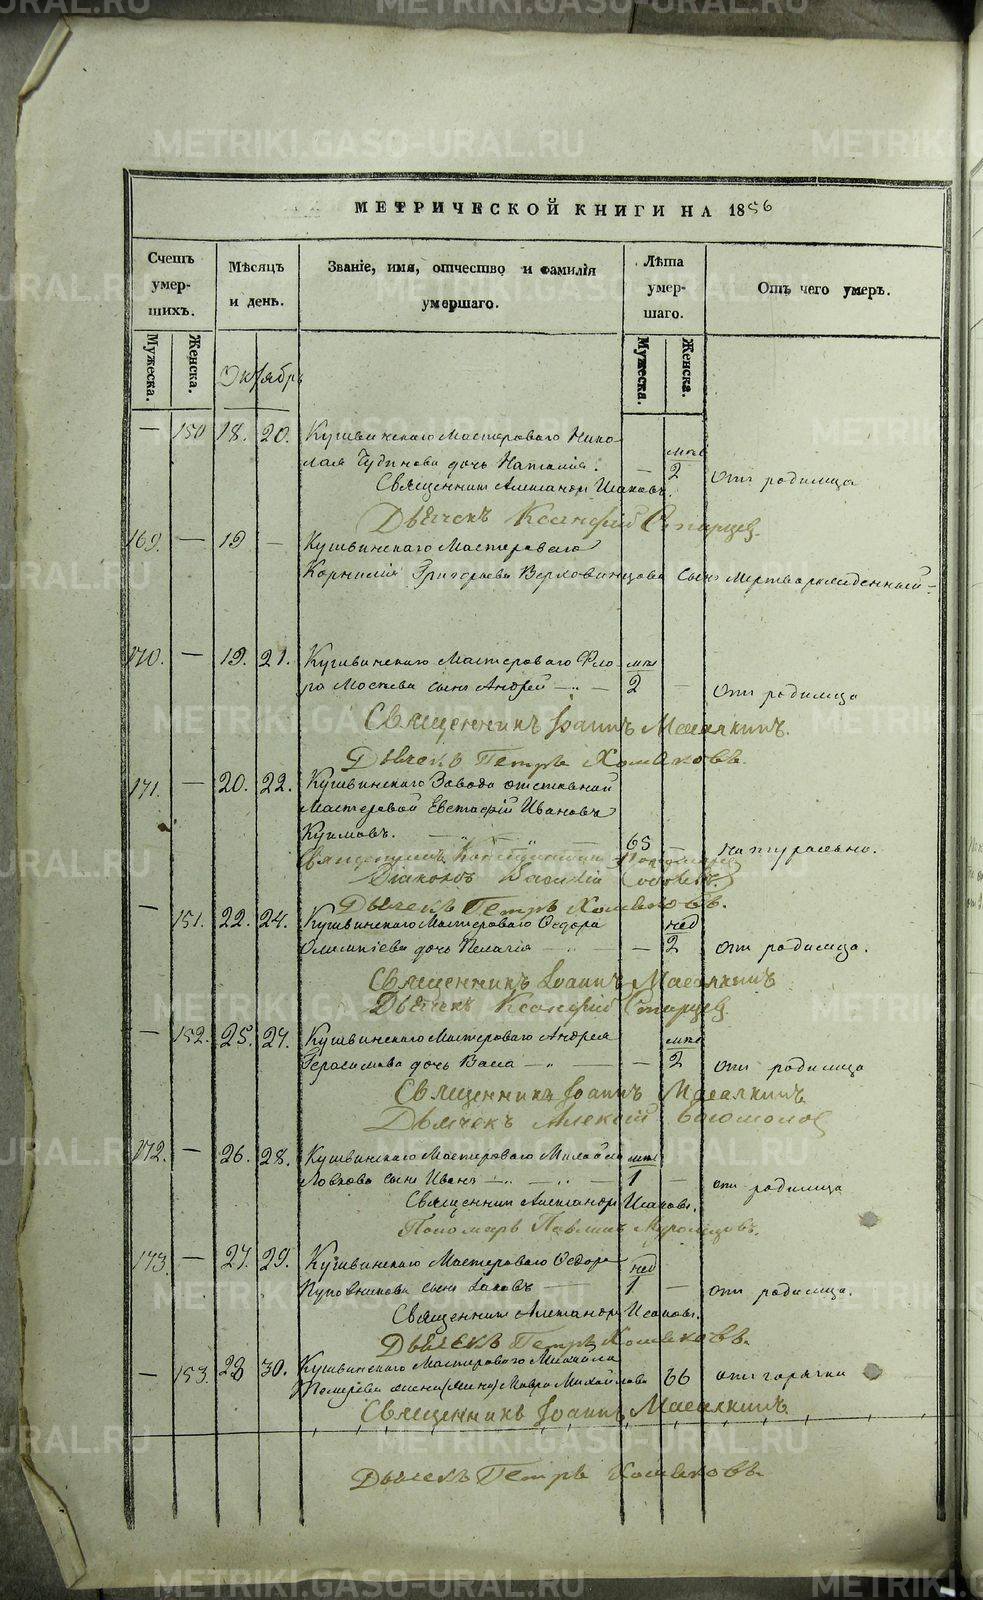 МЕТРИЧЕСКОЙ КНИГИ НА 1856
Счетъ умершихъ.
Мѣсяцъ и день.
Званіе, имя, отчество и фамилія умершаго.
Лѣта умершаго.
Отъ чего умеръ.
Мужеска.
Женска.
Мужеска.
Женска.
Октябрь
— 150 18. 20. Кушвинскаго Мастероваго Нико-
лая Чудинова дочь Наталія. — 2 отъ родимца
Священникъ Александръ Исаковъ.
Дьячекъ Ксенофий Старцев
169. — 19 — Кушвинскаго Мастероваго
Корнилія Григорьева Верховинцова сынъ мертворожденный
170. — 19. 21. Кушвинскаго Мастероваго Фло-
ра Мостева сынъ Андрей — 2 — отъ родимца
Священникъ Іоаннъ
Дьячекъ Петръ Хомяковъ.
171. — 20. 22. Кушвинскаго Завода отставной
Мастеровой Евстафій Ивановъ
65 натурально.
Священникъ
Діаконъ Василій
Дьячекъ Петръ Хомяковъ.
— 151. 22. 24. Кушвинскаго Мастероваго Ѳедора нед
Олимпіева дочь Пелагія — 2 отъ родимца.
Священникъ Іоаннъ
Дьячекъ Ксенофий Старцев
— 152. 25. 27. Кушвинскаго Мастероваго Андрея
Герасимова дочь Васса — 2 отъ родимца
Священникъ Іоаннъ
Дьячекъ Алексій
172. — 26. 28. Кушвинскаго Мастероваго Михайла
сынъ Иванъ 1 — отъ родимца
Священникъ Александръ Исаковъ.
Пономарь Павлинъ
173. — 27. 29. Кушвинскаго Мастероваго Ѳедора нед
Пуповникова сынъ Іаковъ 1 — отъ родимца.
Священникъ Александръ Исаковъ.
Дьячекъ Петръ Хомяковъ.
— 153. 28 30. Кушвинскаго Мастероваго Михаила
жена Мавра Михайлова 66 отъ горячки
Священникъ Іоаннъ
Дьячекъ Петръ Хомяковъ.
METRIKI.GASO-URAL.RU